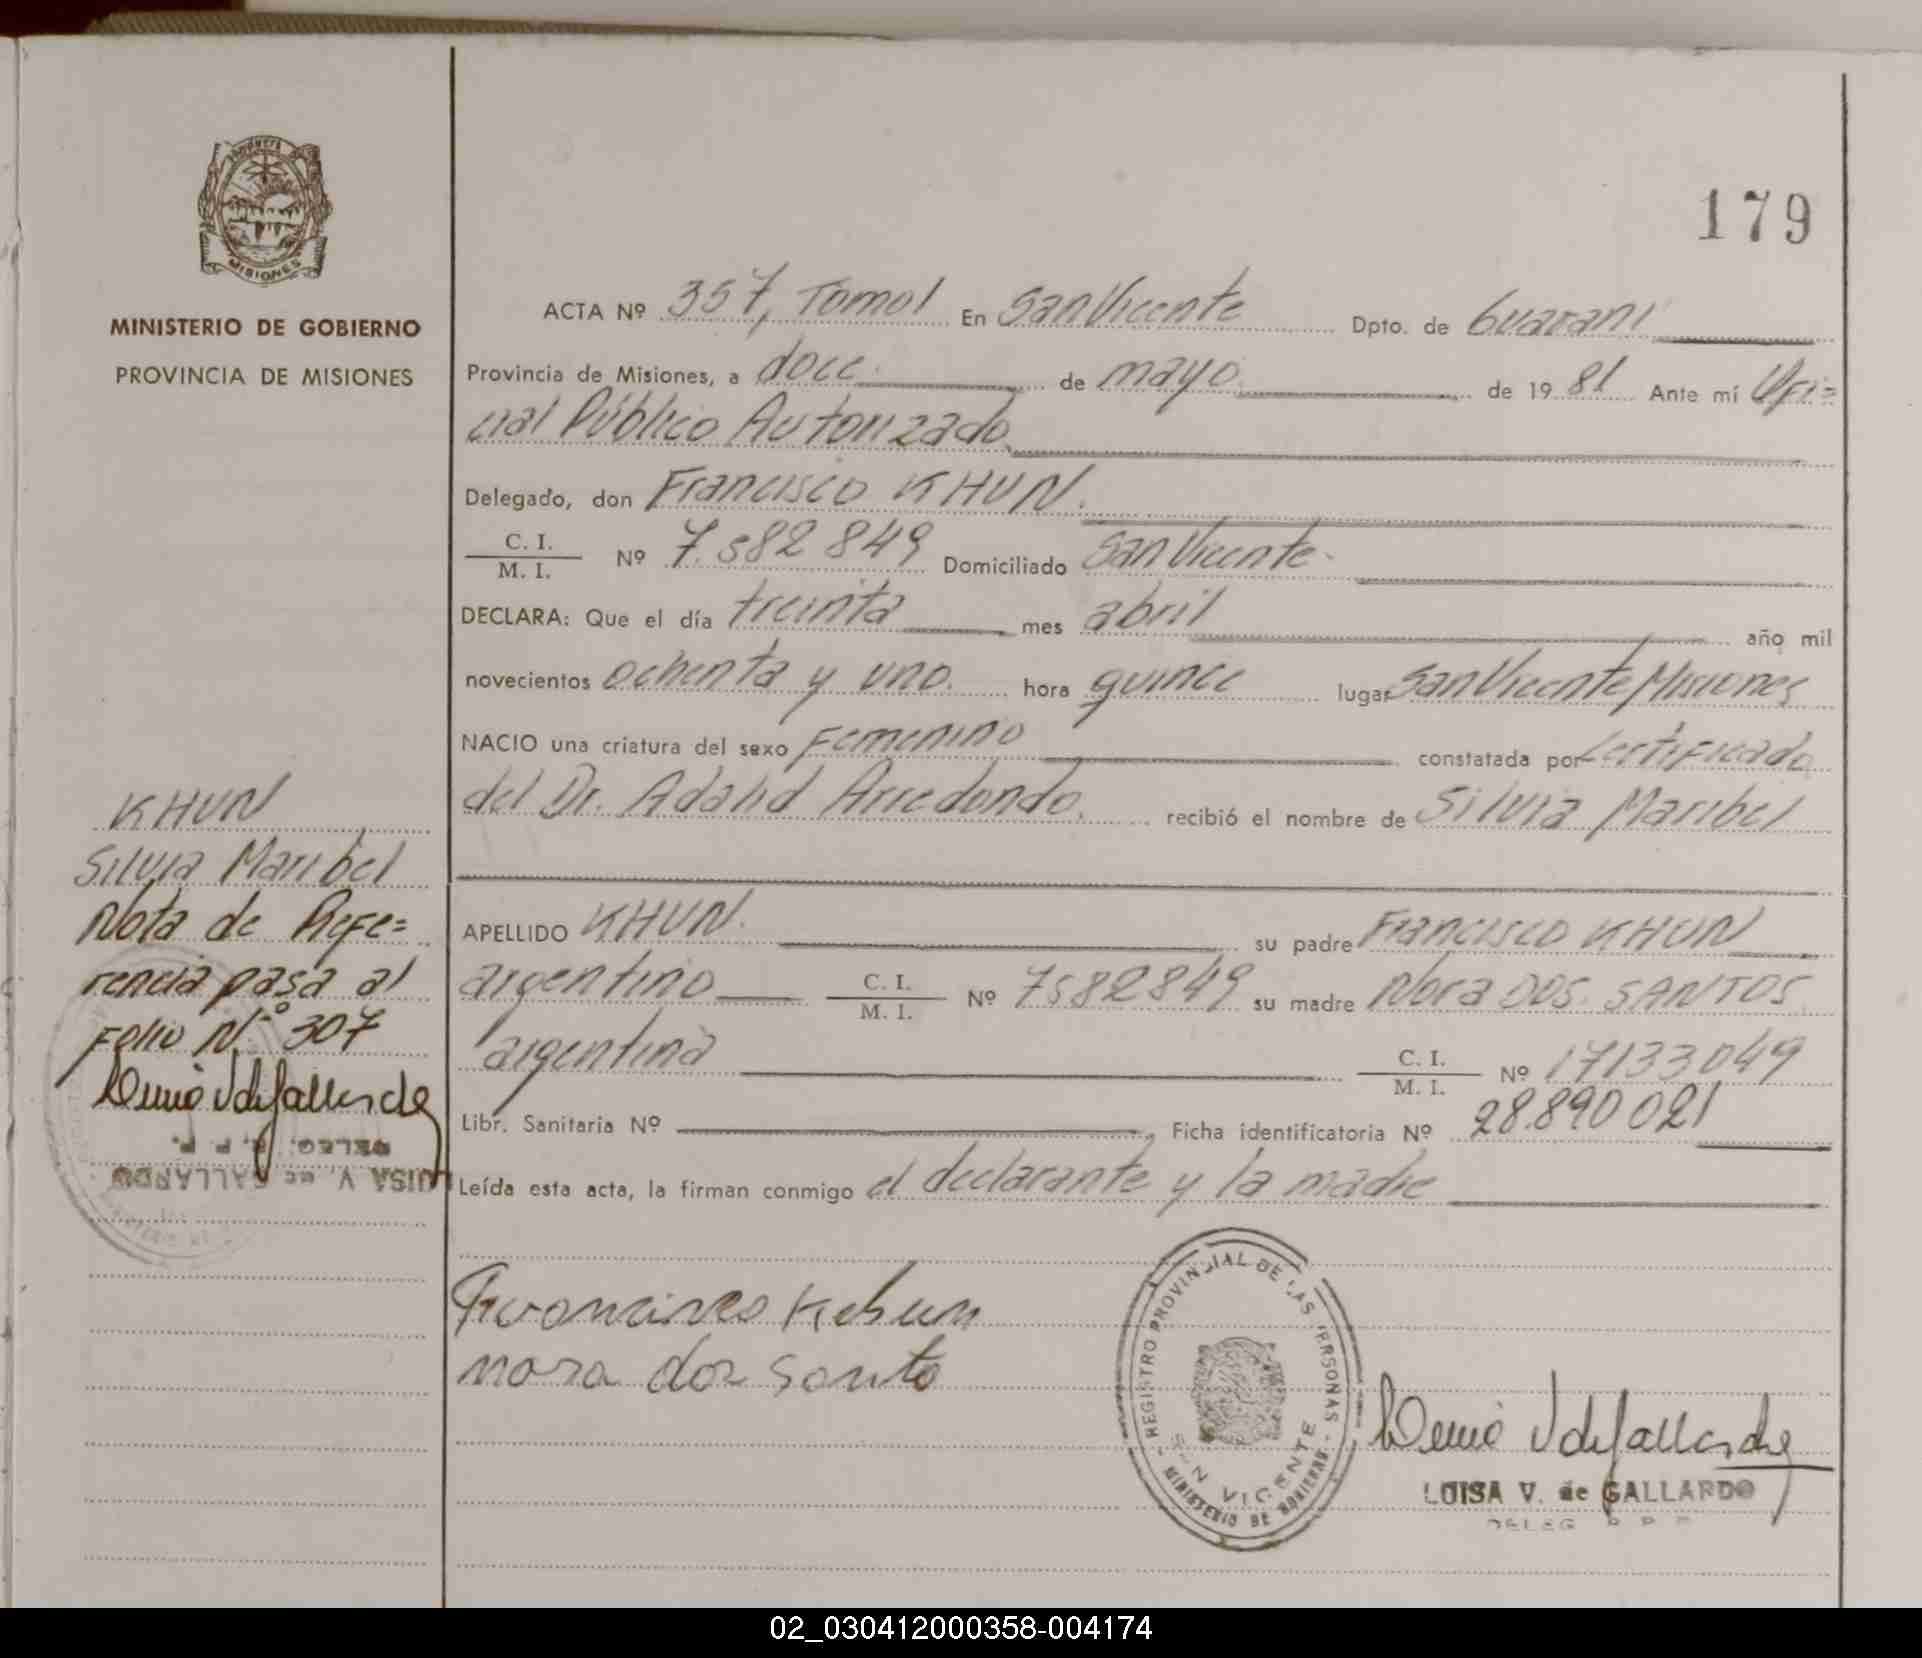 179
MISIONES
MINISTERIO DE GOBIERNO
PROVINCIA DE MISIONES
ACTA Nº 357, Tomo I En San Vicente Dpto. de Guaraní
Provincia de Misiones, a doce de mayo de 1981 Ante mí Ofi=
cial Público Autorizado
Delegado, don Francisco KHUN.
C. I.
M. I. Nº 7.582849 Domiciliado San Vicente-
DECLARA: Que el día treinta mes abril año mil
novecientos ochenta y uno. hora quince lugar San Vicente Misiones
NACIO una criatura del sexo Femenino constatada por Certificado
del Dr. Adalid Arredondo. recibió el nombre de Silvia Maribel
APELLIDO KHUN. su padre Francisco KHUN
argentino C. I.
M. I. Nº 7582849 su madre Nora DOS SANTOS
argentina C. I.
M. I. Nº 17133049
Libr. Sanitaria Nº Ficha identificatoria Nº 28.890021
Leída esta acta, la firman conmigo el declarante y la madre
KHUN
Silvia Maribel
Nota de Refe=
rencia pasa al
Folio N.º 307
DELEG. R. P. P.
LUISA V. de GALLARDO
nora dos Santo
REGISTRO PROVINCIAL DE LAS PERSONAS
SAN VICENTE
MINISTERIO DE GOBIERNO
LUISA V. de GALLARDO
DELEG R P P
02_030412000358-004174